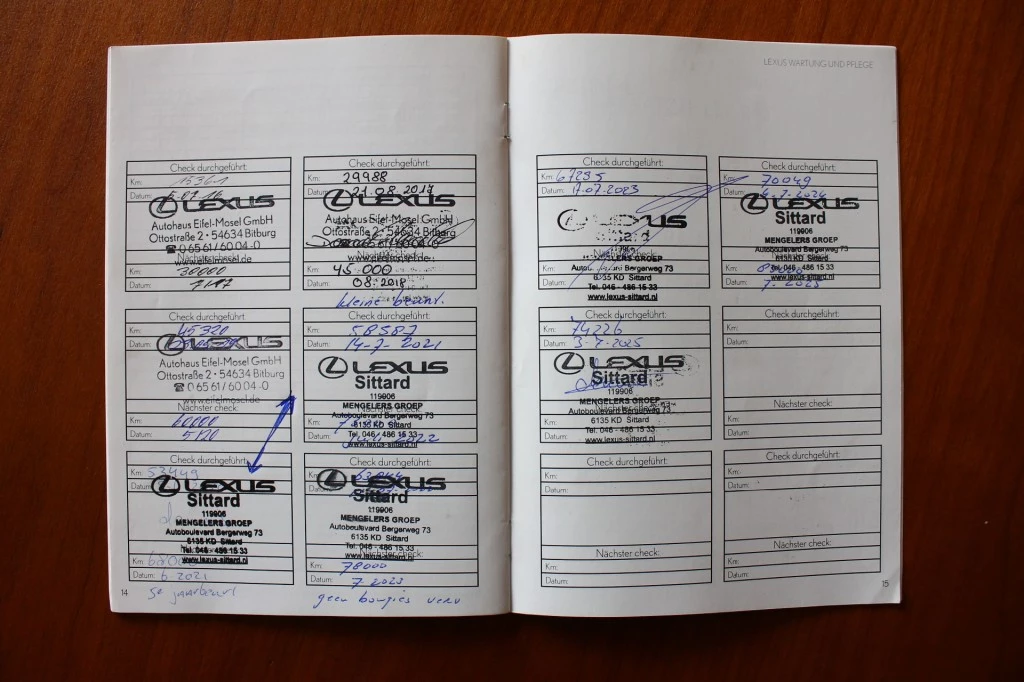 LEXUS WARTUNG UND PFLEGE
Check durchgeführt:
Km: 15361
Datum:
LEXUS
Autohaus Eifel-Mosel GmbH
Ottostraße 2 • 54634 Bitburg
☎ 0 65 61/60 04-0
www.eifelmosel.de
30000
Check durchgeführt:
29988
21.08.2017
LEXUS
Autohaus Eifel-Mosel GmbH
Ottostraße 2 • 54634 Bitburg
www.eifelmosel.de
45.000
08.2018
kleine
Check durchgeführt:
Km: 45320
Datum:
LEXUS
Autohaus Eifel-Mosel GmbH
Ottostraße 2 • 54634 Bitburg
☎ 0 65 61/60 04-0
www.eifelmosel.de
Nächster check:
Km: 60000
Datum: 5/20
Check durchgeführt:
Km: 58587
Datum: 14-7-2021
LEXUS
Sittard
119906
MENGELERS GROEP
Autoboulevard Bergerweg 73
6135 KD Sittard
Tel. 046 - 486 15 33
www.lexus-sittard.nl
2022
Check durchgeführt:
Km: 53449
Datum:
LEXUS
Sittard
119906
MENGELERS GROEP
Autoboulevard Bergerweg 73
6135 KD Sittard
Tel. 046 - 486 15 33
www.lexus-sittard.nl
Km: 68000
Datum: 6.2021
Check durchgeführt:
Km:
Datum:
LEXUS
Sittard
119906
MENGELERS GROEP
Autoboulevard Bergerweg 73
6135 KD Sittard
Tel. 046 - 486 15 33
www.lexus-sittard.nl
Km: 78000
Datum: 7.2023
geen bougies verv
14
Check durchgeführt:
Km: 67295
Datum: 17.07.2023
LEXUS
Sittard
119906
MENGELERS GROEP
Autoboulevard Bergerweg 73
6135 KD Sittard
Tel. 046 - 486 15 33
www.lexus-sittard.nl
Check durchgeführt:
Km: 70049
Datum: 4-7-2024
LEXUS
Sittard
119906
MENGELERS GROEP
Autoboulevard Bergerweg 73
6135 KD Sittard
Tel. 046 - 486 15 33
www.lexus-sittard.nl
Check durchgeführt:
Km: 74226
Datum: 3-7-2025
LEXUS
Sittard
119906
MENGELERS GROEP
Autoboulevard Bergerweg 73
6135 KD Sittard
Tel. 046 - 486 15 33
www.lexus-sittard.nl
Check durchgeführt:
Km:
Datum:
Nächster check:
Km:
Datum:
Check durchgeführt:
Km:
Datum:
Nächster check:
Km:
Datum:
Check durchgeführt:
Km:
Datum:
Nächster check:
Km:
Datum:
15